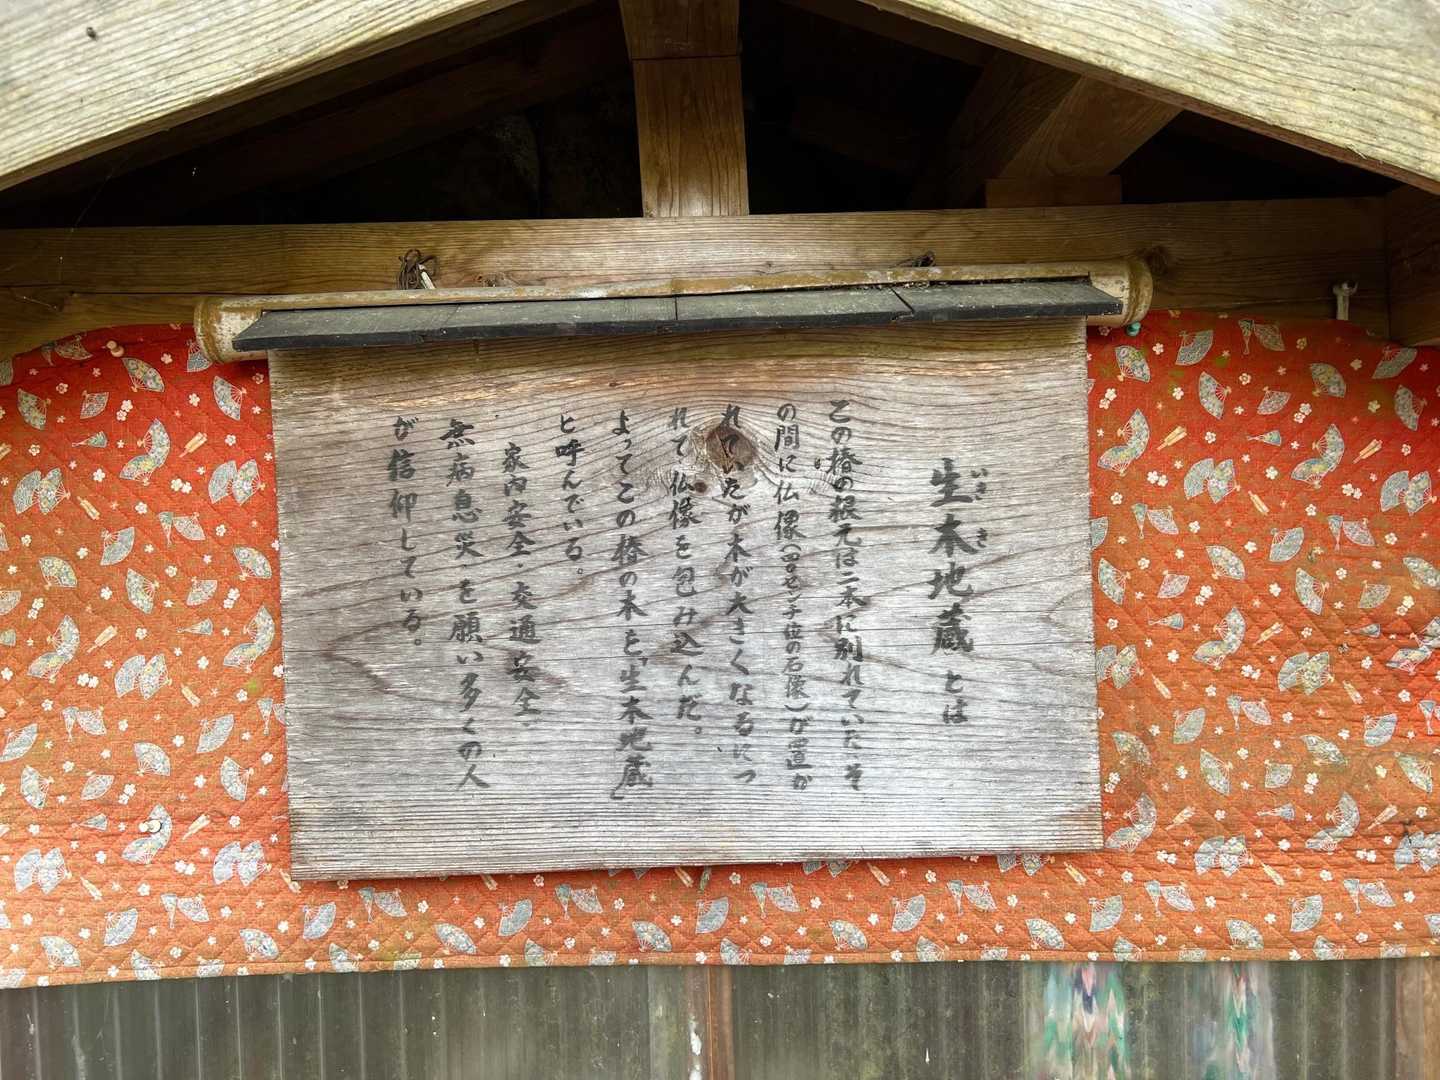 生木地蔵とは
いき き
この椿の根元は二本に別れていたそ
の間に仏像(80センチ位の石像)が置か
れていたが木が大きくなるにつ
れて仏像を包み込んだ。
よってこの椿の木を「生木地蔵」
と呼んでいる。
家内安全・交通安全・
無病息災を願い多くの人
が信仰している。